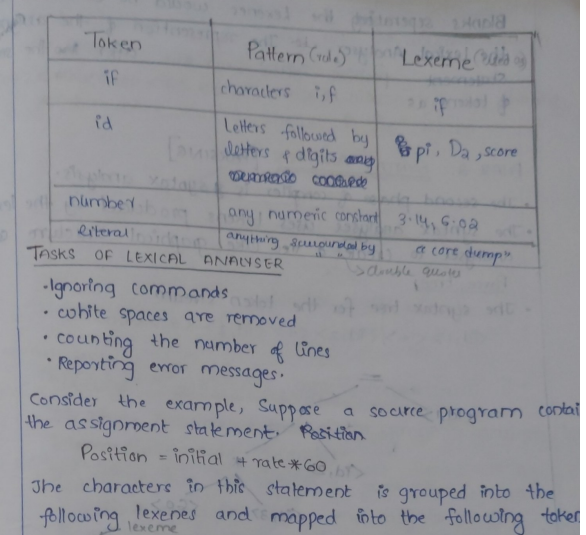 Token Pattern (rule) Lexeme
if characters i,f if
id Letters followed by letters & digits pi, D2, score
number any numeric constant 3.14, 6.02
literal anything surrounded by " " "a core dump"
double quotes
TASKS OF LEXICAL ANALYSER
• Ignoring commands
• white spaces are removed
• counting the number of lines
• Reporting error messages.
Consider the example, Suppose a source program contai
the assignment statement. Position
Position = initial + rate * 60
The characters in this statement is grouped into the
following lexenes and mapped into the following token
lexeme